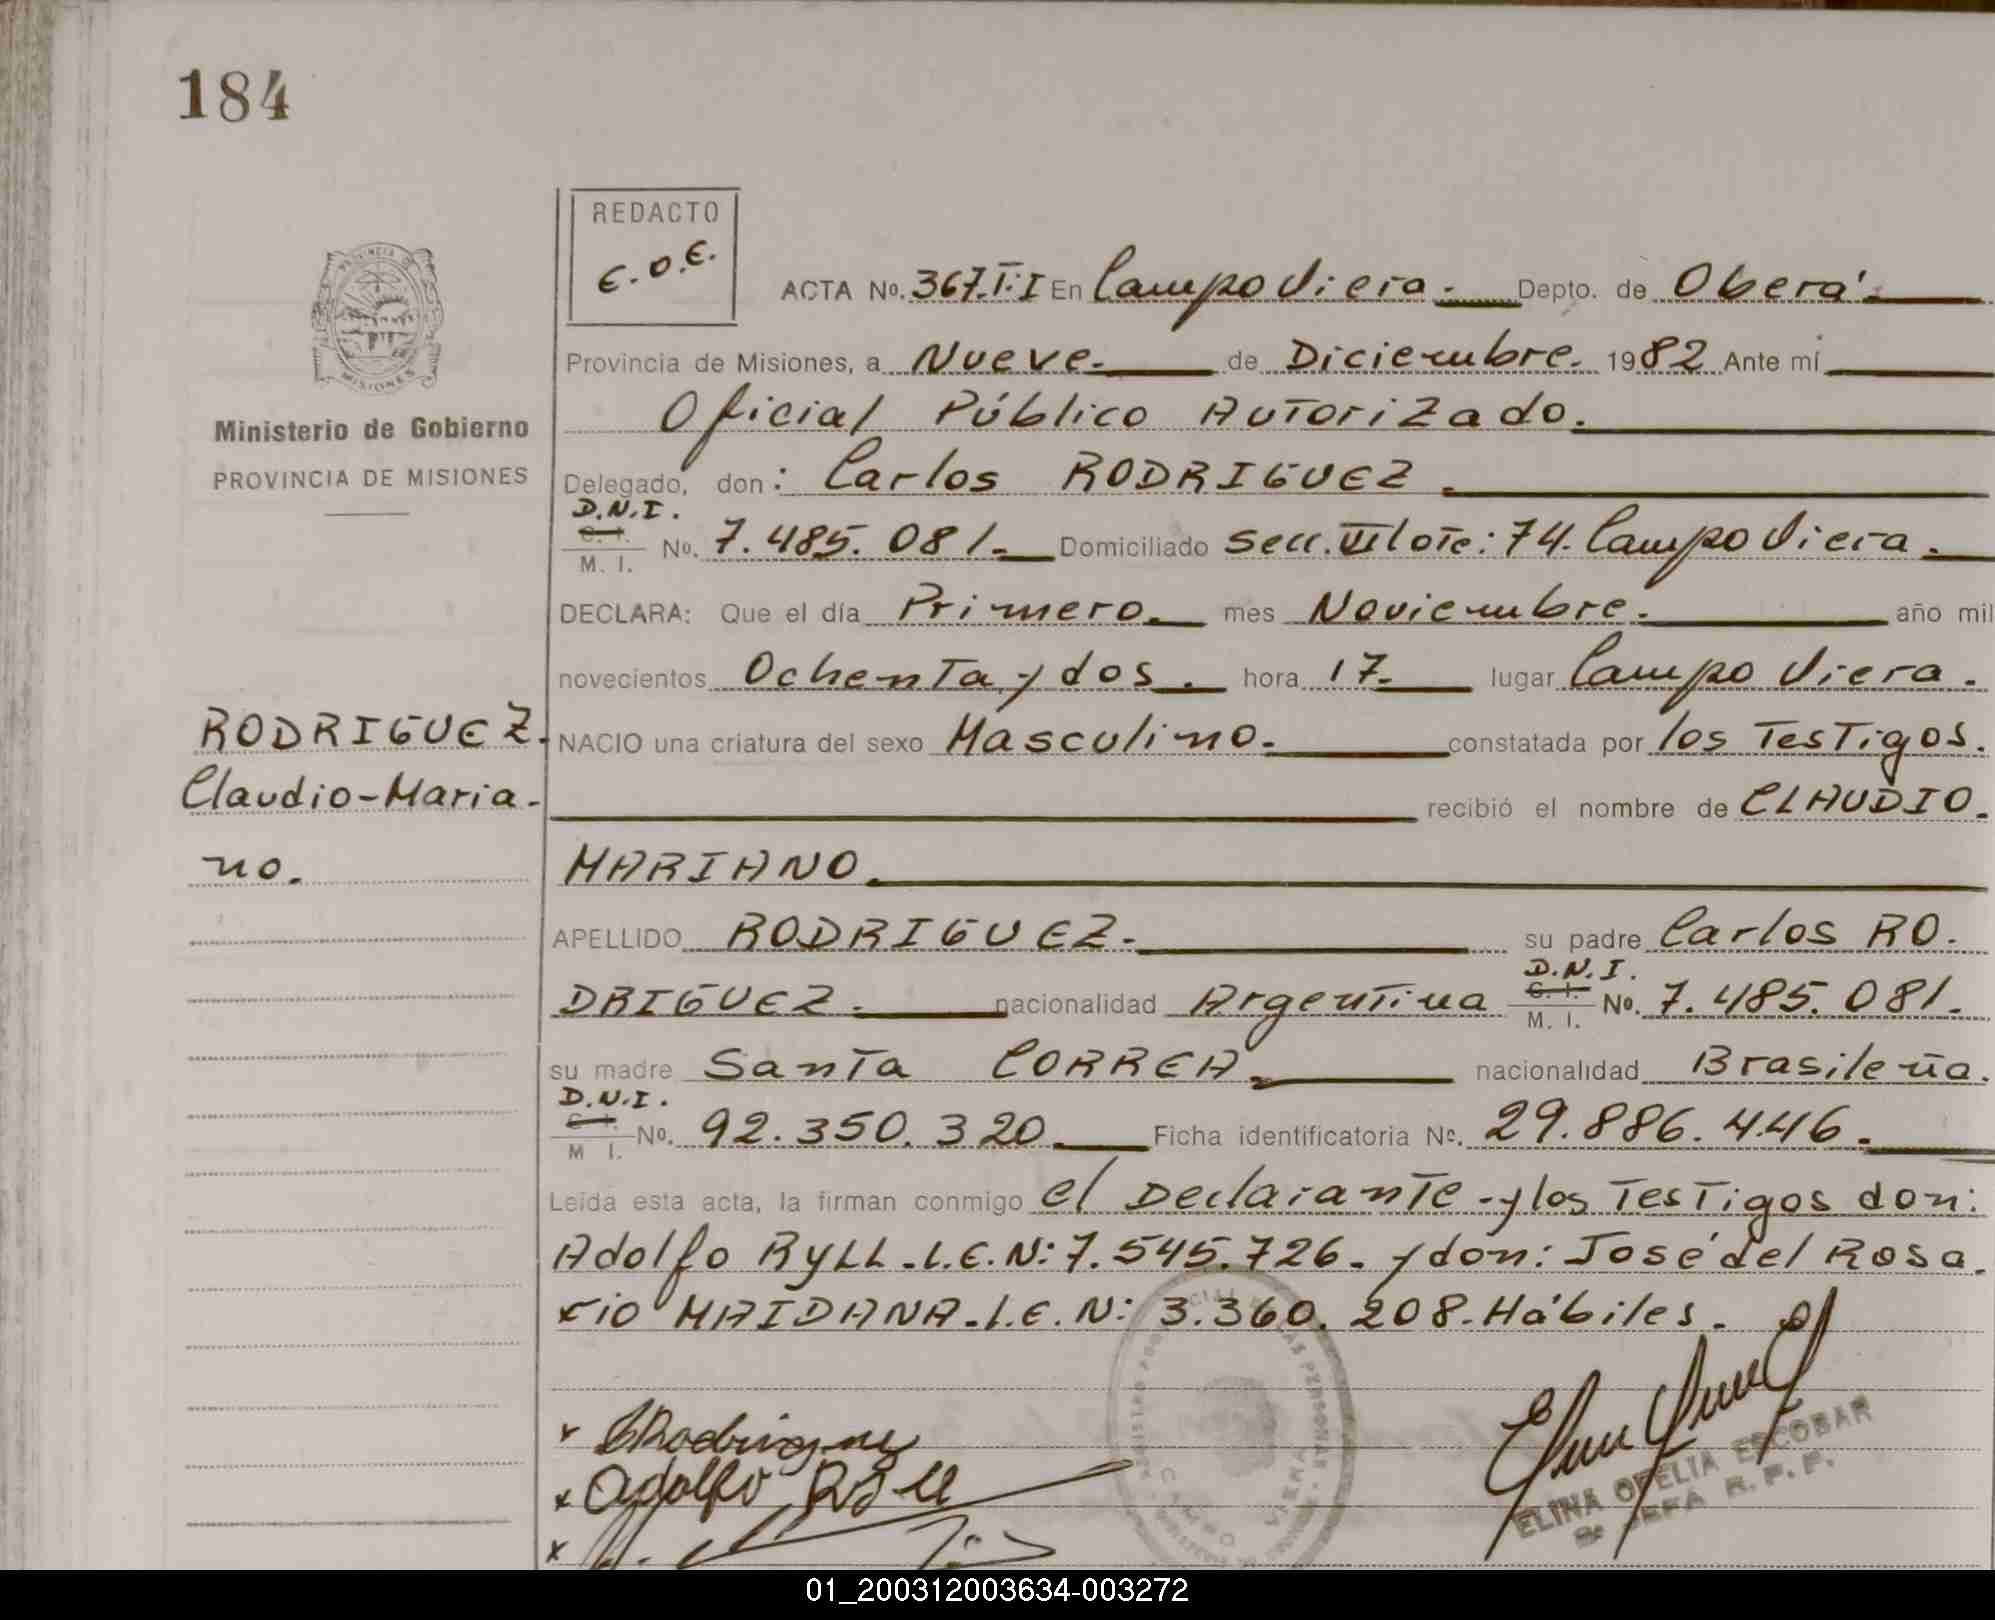 184
REDACTO
E.O.E.
ACTA No. 367.T:I En Campo Viera. Depto. de Oberá.
Provincia de Misiones, a Nueve. de Diciembre. 1982 Ante mí
Oficial Público Autorizado.
Ministerio de Gobierno
PROVINCIA DE MISIONES
Delegado, don: Carlos RODRIGUEZ.
D.N.I.
C. I.
M. I. No. 7.485.081. Domiciliado Secc. VII lote: 74. Campo Viera.
DECLARA: Que el día Primero. mes Noviembre. año mil
novecientos Ochenta y dos. hora 17. lugar Campo Viera.
RODRIGUEZ.
NACIO una criatura del sexo Masculino. constatada por los Testigos.
Claudio-Maria-
recibió el nombre de CLAUDIO.
no.
MARIANO.
APELLIDO RODRIGUEZ. su padre Carlos RO.
D.N.I.
DRIGUEZ. nacionalidad Argentina C. I. M. I. No. 7.485.081.
su madre Santa CORREA. nacionalidad Brasileña.
D.N.I.
C. I.
M I. No. 92.350.320. Ficha identificatoria No. 29.886.446.
Leída esta acta, la firman conmigo el Declarante-y los Testigos don:
Adolfo RYLL.L.E.N: 7.545.726. y don: José del Rosa.
rio MAIDANA.L.E.N: 3.360.208. Hábiles.
x Rodriguez
x Adolfo Ryll
x
ELINA OFELIA ESCOBAR
JEFA R.P.P.
01_200312003634-003272